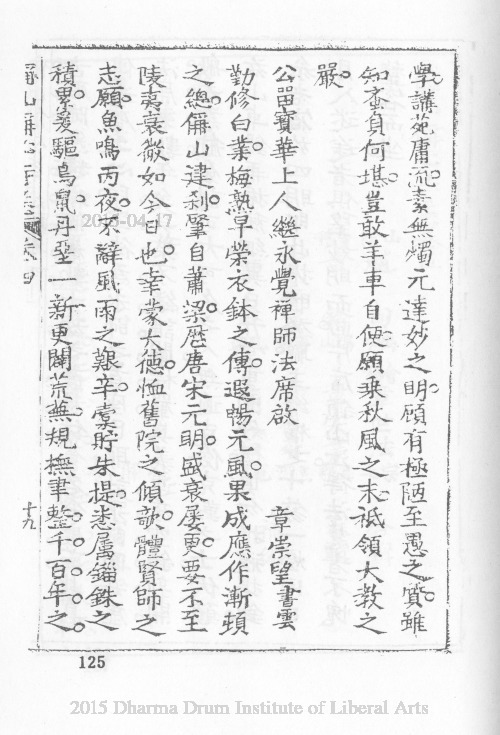 學講苑庸流素無燭元達妙之明顧有極陋至愚之質雖
知蚉負何堪豈敢羊車自便願乘秋風之末祗領大教之
嚴
公邑寳華上人繼永覺禪師法席啟 章崇望書雲
勤修白業梅熟早榮衣鉢之傳遐暢元風果成應作漸頓
之總偋山建刹肇自蕭梁歷唐宋元明盛衰屢更要不至
陵夷衰微如今日也幸蒙大德恤舊院之傾欹體賢師之
志願魚鳴丙夜不辭風雨之艱辛囊貯朱提悉属錙銖之
積累爰驅鳥鼠丹堊一新更闢荒蕪規撫聿整千百年之
山 志 卷四 十九
125
2015-04-17
2015 Dharma Drum Institute of Liberal Arts